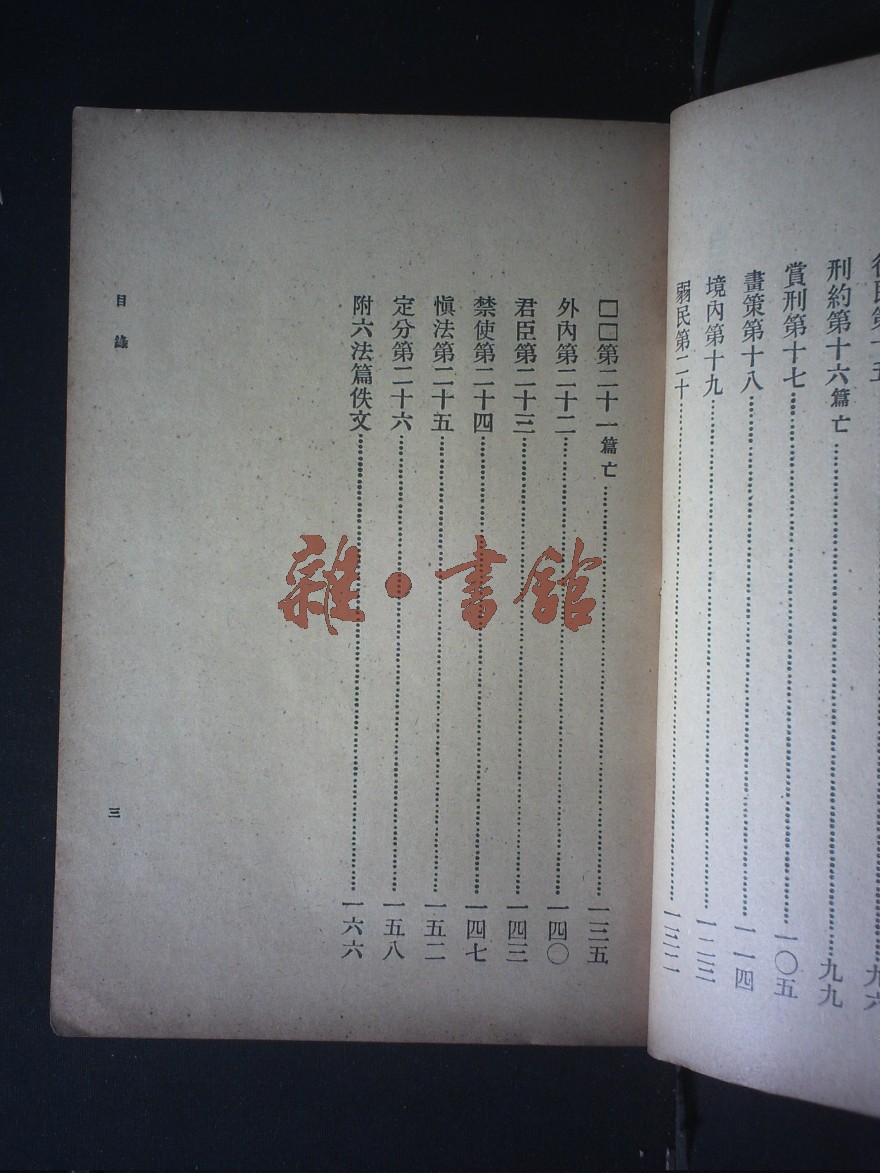 刑約第十六篇亡……九九
賞刑第十七……一〇五
畫策第十八……一一四
境內第十九……一二三
弱民第二十……一三二
□□第二十一篇亡……一三五
外內第二十二……一四〇
君臣第二十三……一四三
禁使第二十四……一四七
愼法第二十五……一五二
定分第二十六……一五八
附六法篇佚文……一六六
目錄
三
雜·書館